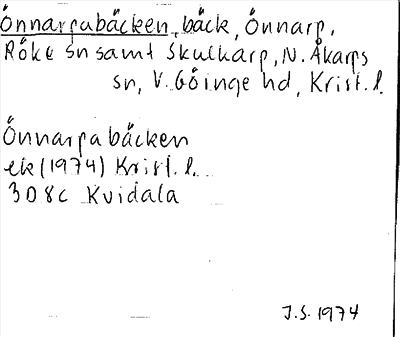 Önnarpabäcken, bäck, Önnarp,
Röke sn samt Skulkarp, N. Åkarps
sn, V. Göinge hd, Krist. l.
Önnarpabäcken
ek (1974) Krist. l.
3D8c Kvidala
J.S. 1974